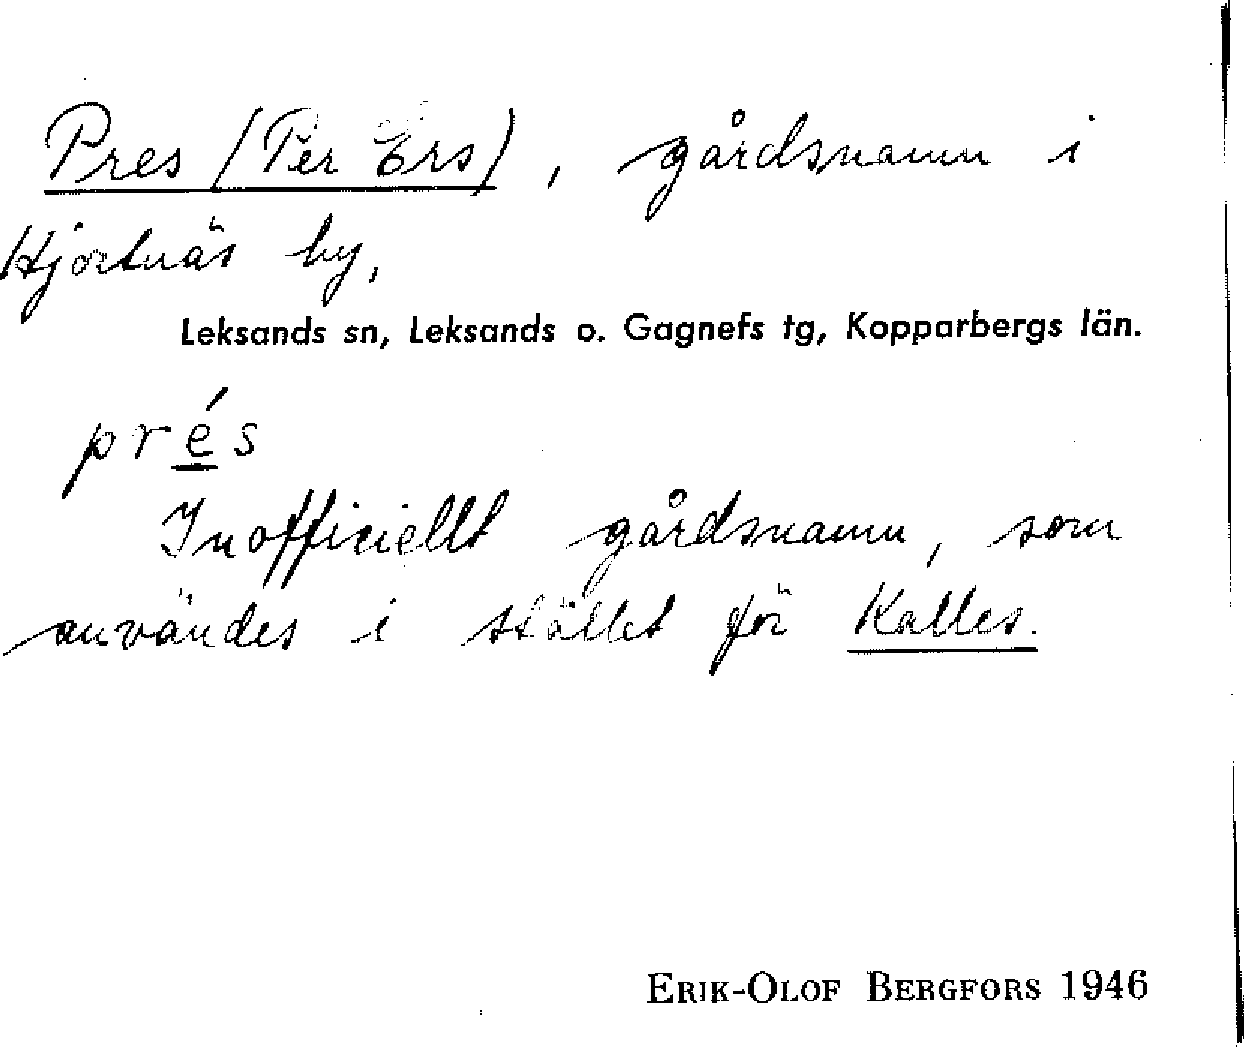 Pres (Per Ers), gårdsnamn i
Hjortnäs by,
Leksands sn, Leksands o. Gagnefs tg, Kopparbergs län.
prés
Inofficiellt gårdsnamn, som
användes i stället för Kalles.
ERIK-OLOF BERGFORS 1946